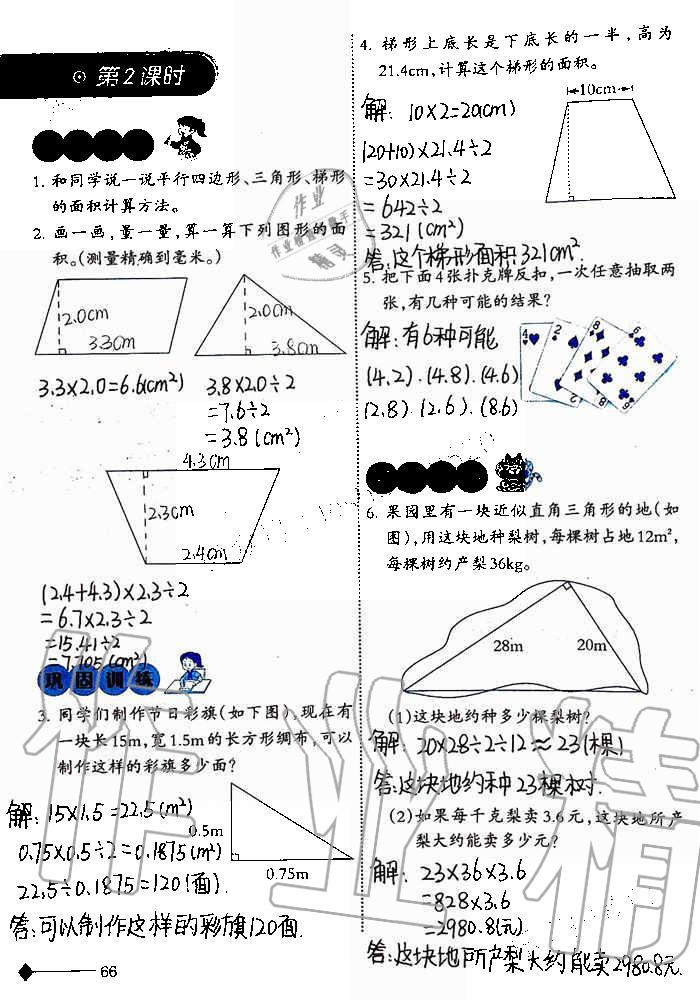 第2课时
1. 和同学说一说平行四边形、三角形、梯形
的面积计算方法。
2. 画一画,量一量,算一算下列图形的面
积。(测量精确到毫米。)
2.0cm
3.3cm
2.0cm
3.8cm
3.3×2.0=6.6(cm²)
3.8×2.0÷2
=7.6÷2
=3.8(cm²)
4.3cm
2.3cm
2.4cm
(2.4+4.3)×2.3÷2
=6.7×2.3÷2
=15.41÷2
=7.705(cm²)
巩固训练
3. 同学们制作节日彩旗(如下图),现在有
一块长15m,宽1.5m的长方形绸布,可以
制作这样的彩旗多少面?
解: 15×1.5=22.5(m²)
0.75×0.5÷2=0.1875(m²)
22.5÷0.1875=120(面).
0.5m
0.75m
答:可以制作这样的彩旗120面.
66
4. 梯形上底长是下底长的一半,高为
21.4cm,计算这个梯形的面积。
10cm
解: 10×2=20(cm)
(20+10)×21.4÷2
=30×21.4÷2
=642÷2
=321(cm²)
答:这个梯形面积321cm².
5. 把下面4张扑克牌反扣,一次任意抽取两
张,有几种可能的结果?
解:有6种可能
(4.2).(4.8).(4.6)
(2.8).(2.6).(8.6)
4
2
8
6
6. 果园里有一块近似直角三角形的地(如
图),用这块地种梨树,每棵树占地12m²,
每棵树约产梨36kg。
28m
20m
(1)这块地约种多少棵梨树?
解: 20×28÷2÷12≈23(棵)
答:这块地约种23棵树.
(2)如果每千克梨卖3.6元,这块地所产
梨大约能卖多少元?
解: 23×36×3.6
=828×3.6
=2980.8(元)
答:这块地所产梨大约能卖2980.8元.
作业精